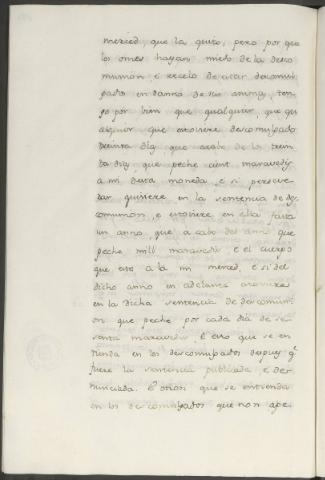 merced, que la quito, pero por que
los omes hayan miedo de la desco
munion, é recelo de estar descomul
gados en danno de sus animas, ten
go por bien que qualquier, que
alguno que estoviere descomulgado
treinta dias, que acabo de los trein
ta dias, que peche cient maravedis
á mi desta moneda, é si perseve
rar quisiere en la sentencia de des
comunion, é estoviere en ella fasta
un anno, que á cabo del anno que
peche mill maravedis é el cuerpo
que esté á la mi merced, é si del
dicho anno en adelante estoviere
en la dicha sentencia de descomuni
on que peche por cada dia de se
senta maravedis é esto que se en
tienda en los descomulgados despues q.e
fuere la sentencia publicada é de
nunciada. É otrosi que se entienda
en los descomulgados que non ape